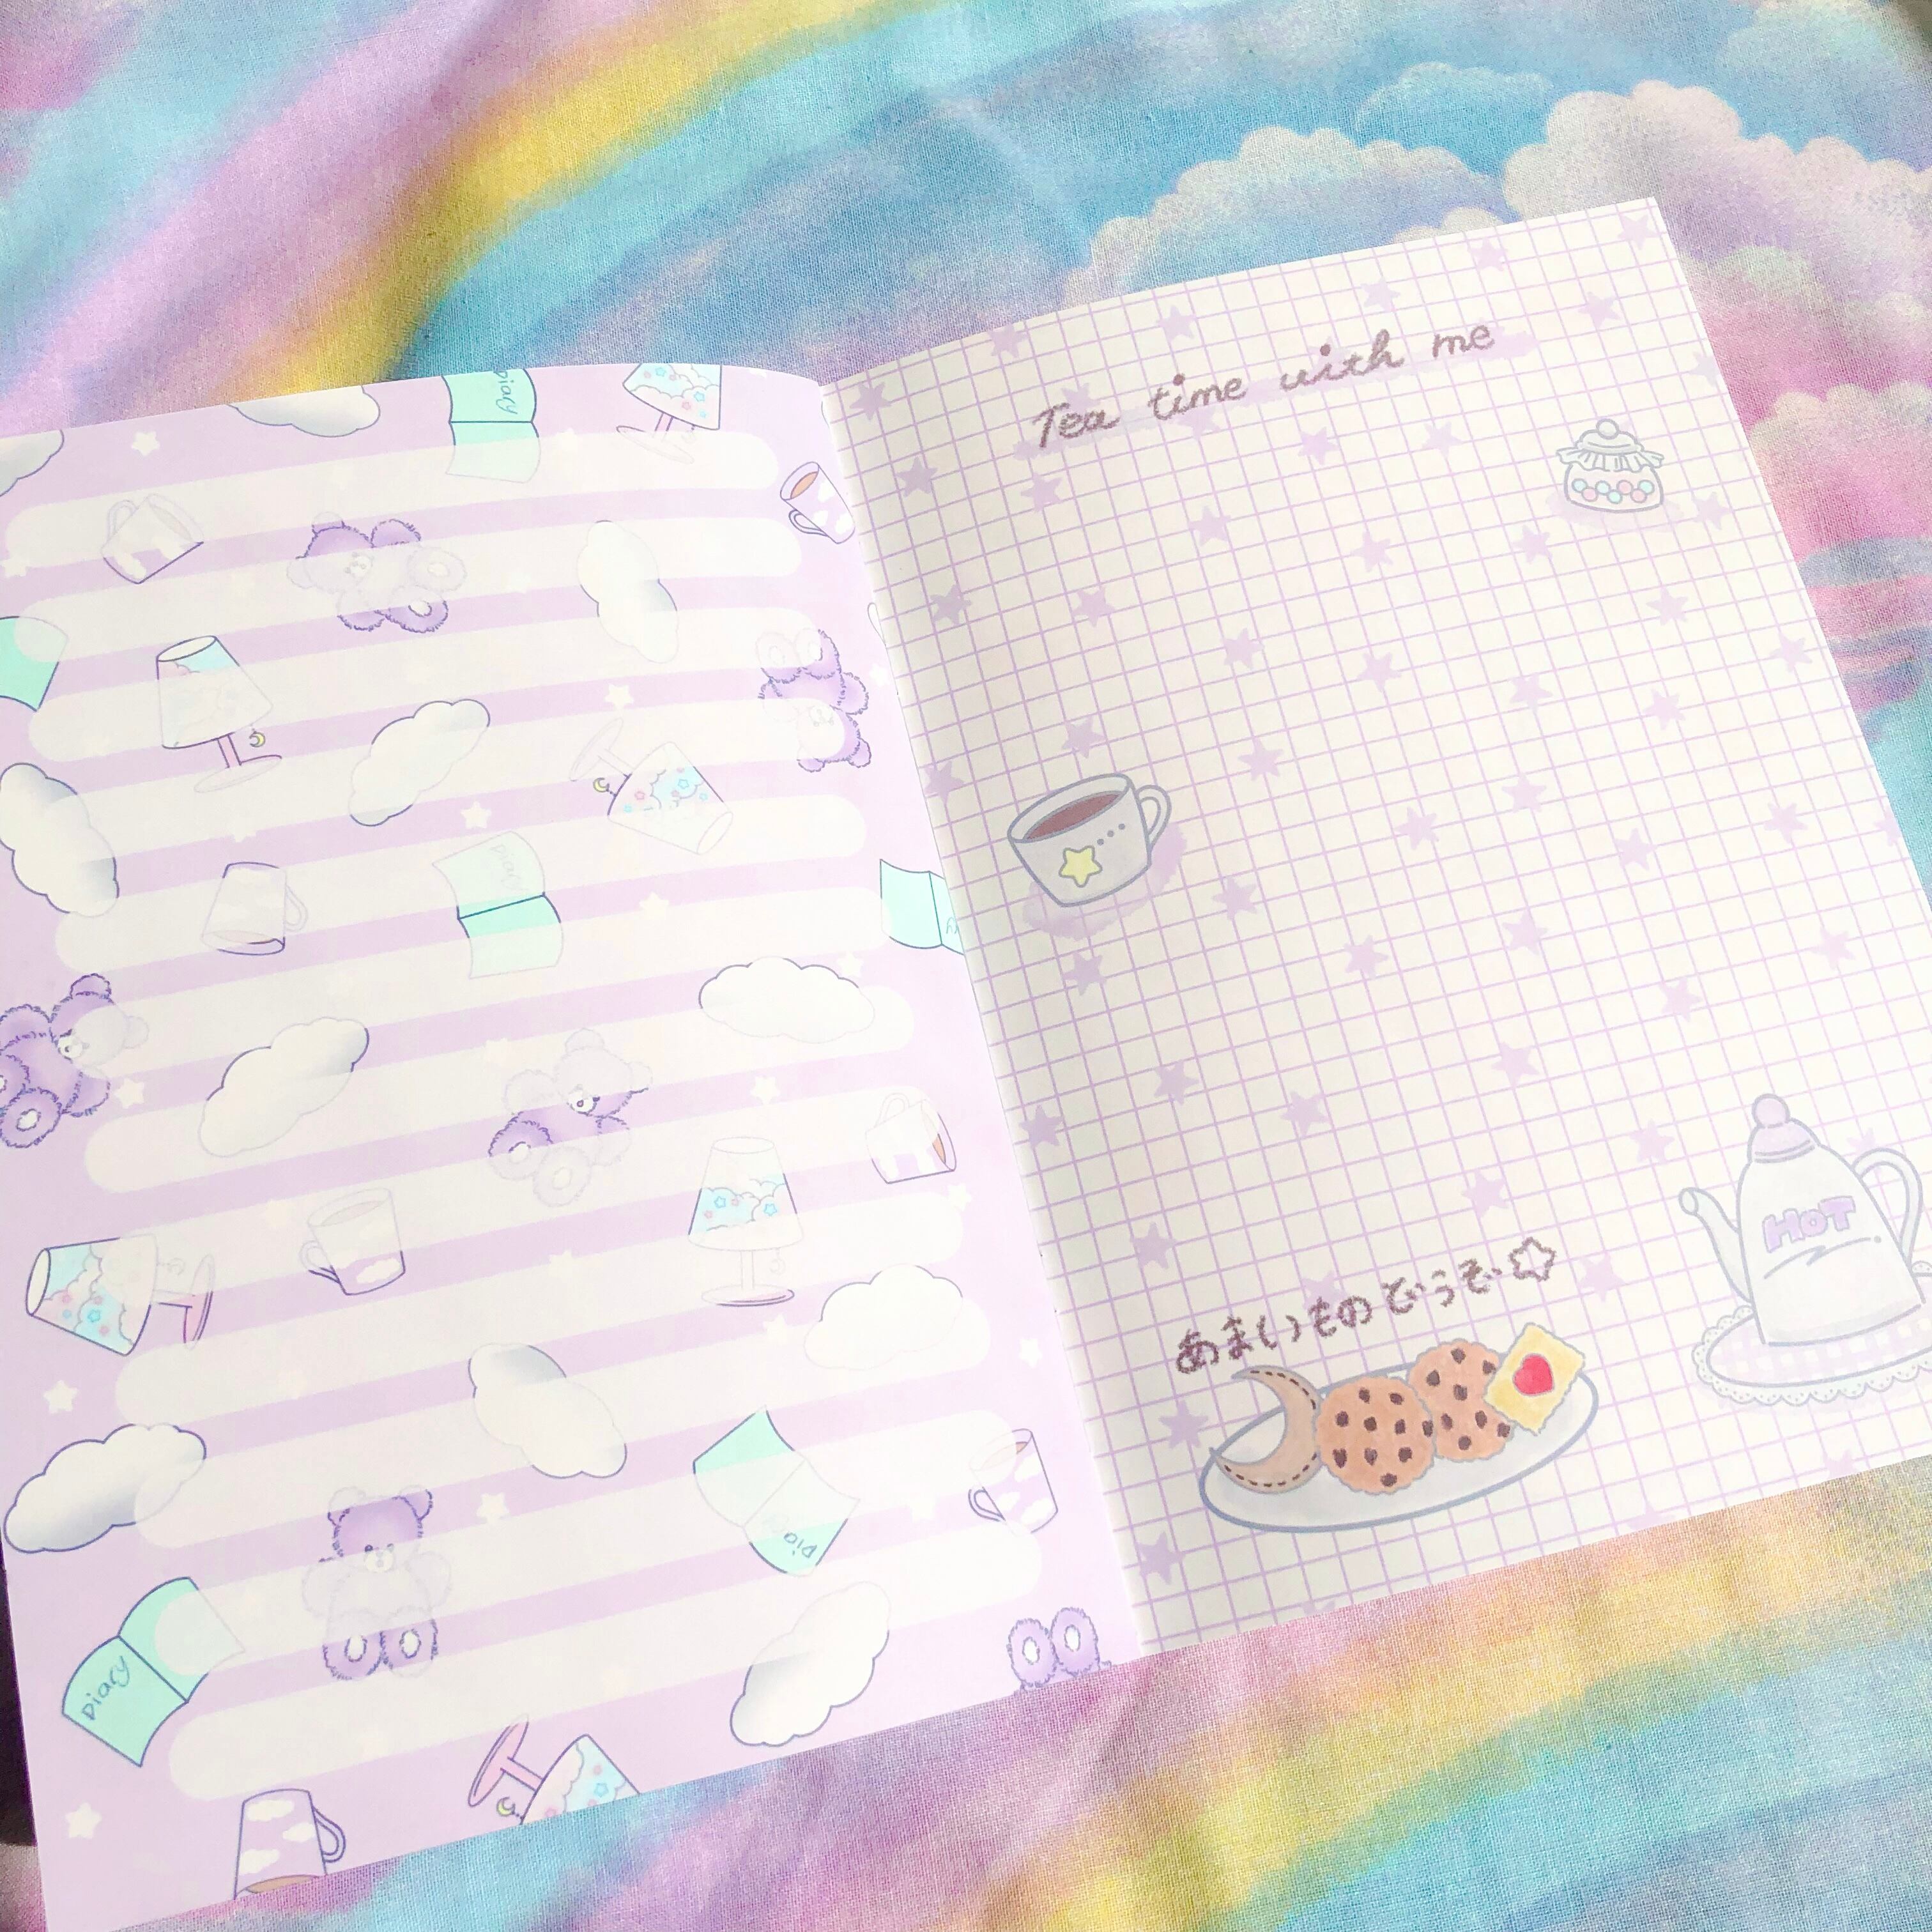 Diary
Diary
Diary
Dia
Tea time with me
HOT
あまいものどうぞ☆